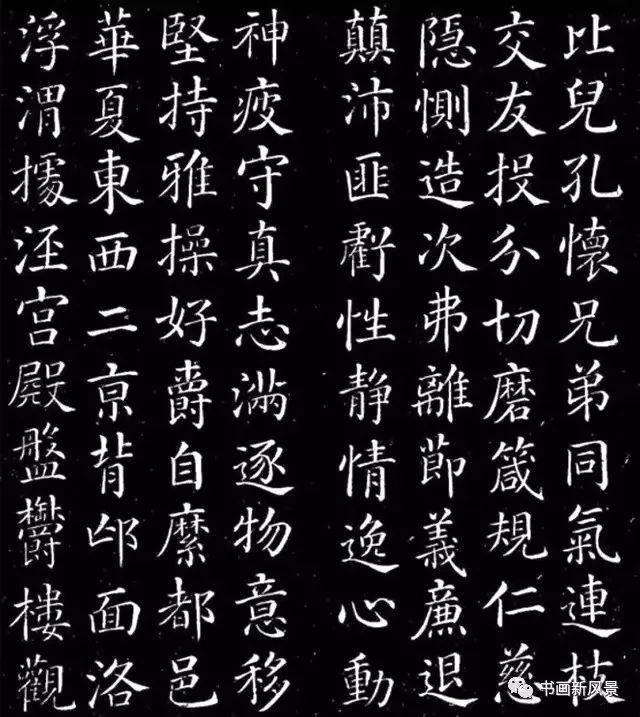 比兒孔懷兄弟同氣連枝
交友投分切磨箴規仁慈
隱惻造次弗離節義廉退
顛沛匪虧性靜情逸心動
神疲守真志滿逐物意移
堅持雅操好爵自縻都邑
華夏東西二京背邙面洛
浮渭據涇宮殿盤鬱樓觀
书画新风景